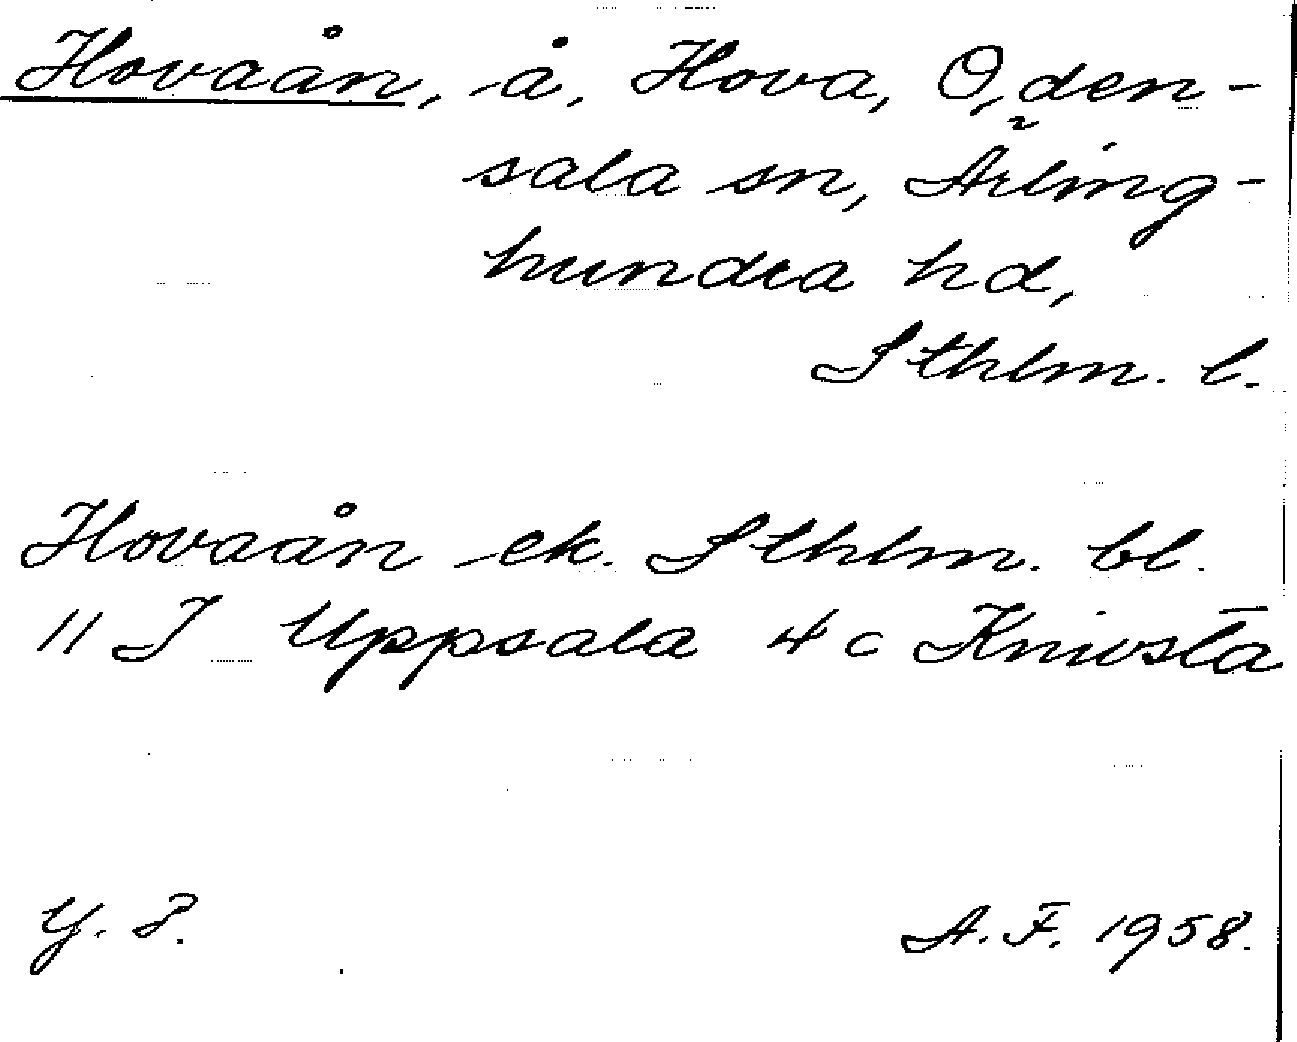 Hovaån, å, Hova, Oden-
sala sn, Ärling-
hundra hd,
Sthlm. l.
Hovaån ek. Sthlm. bl.
11 I Uppsala 4 c Knivsta
Y. P. A. F. 1958.